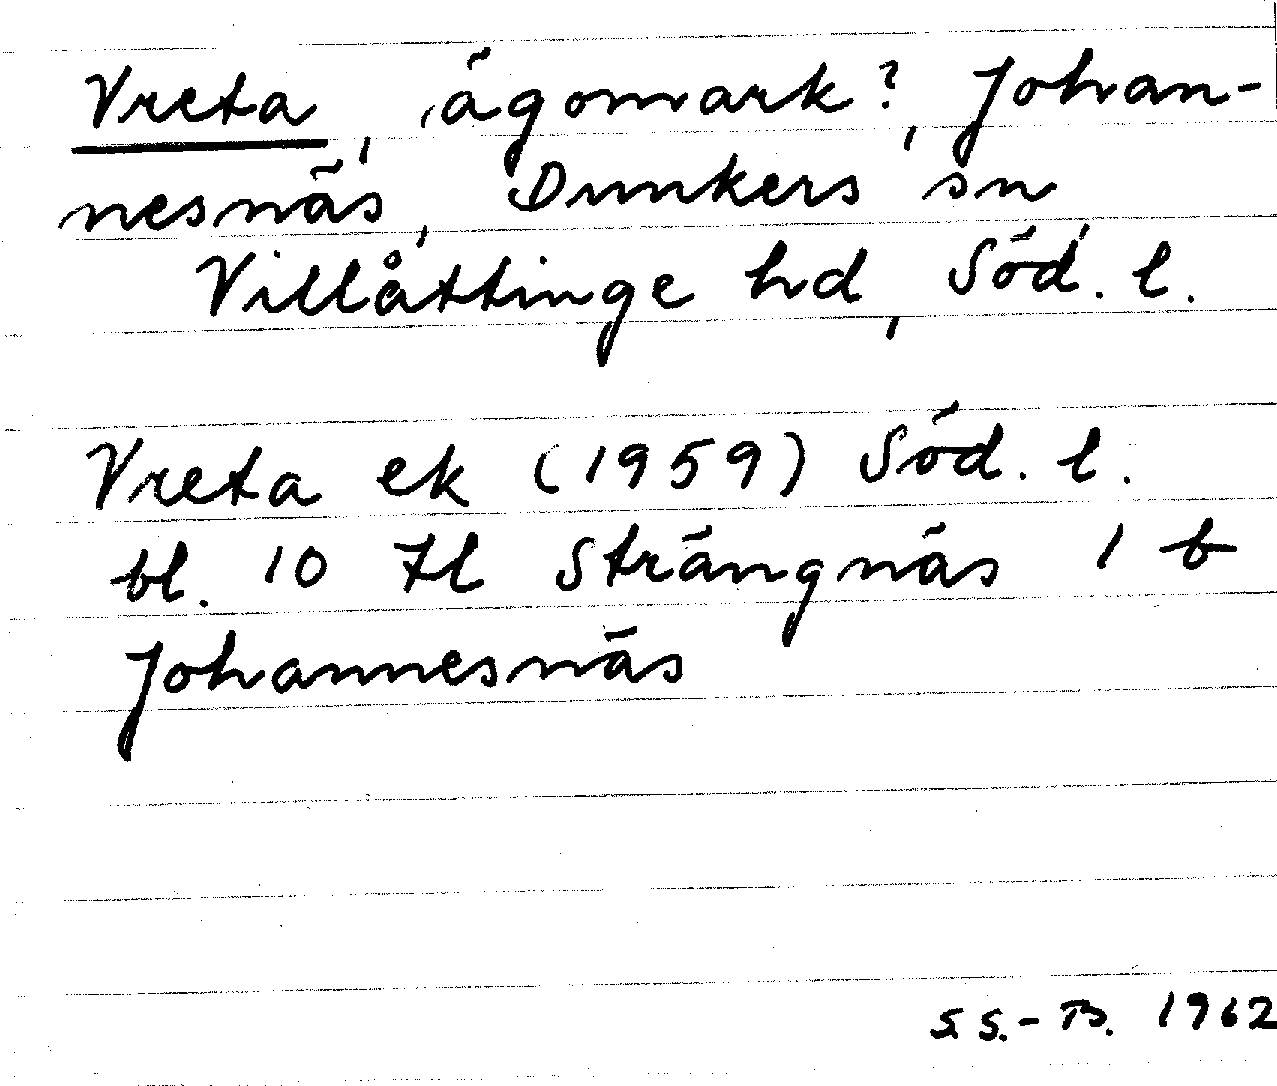 Vreta, ägomark?, Johan-
nesnäs, Dunkers sn,
Villåttinge hd, Söd. l.
Vreta ek (1959) Söd. l.
bl. 10 Hl Strängnäs 1 b
Johannesnäs
S S.-B. 1962